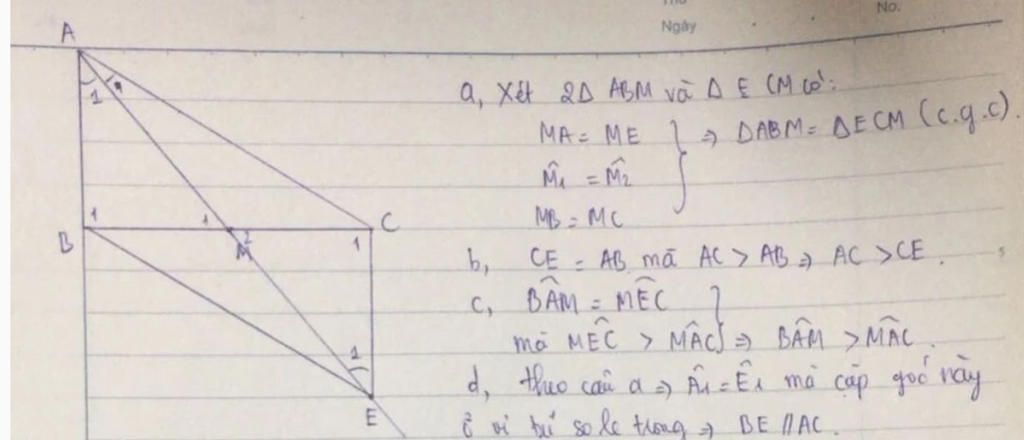 No.
Ngày
A
1
2
a, Xét 2Δ ABM và Δ ECM có:
MA = ME
M̂₁ = M̂₂
MB = MC
⇒ ΔABM = ΔECM (c.g.c).
B
1
1
2
M
C
1
b, CE = AB mà AC > AB ⇒ AC > CE.
c, BÂM = MÊC
mà MÊC > MÂC ⇒ BÂM > MÂC.
1
E
d, theo câu a ⇒ Â₁ = Ê₁ mà cặp góc này
ở vị trí so le trong ⇒ BE // AC.